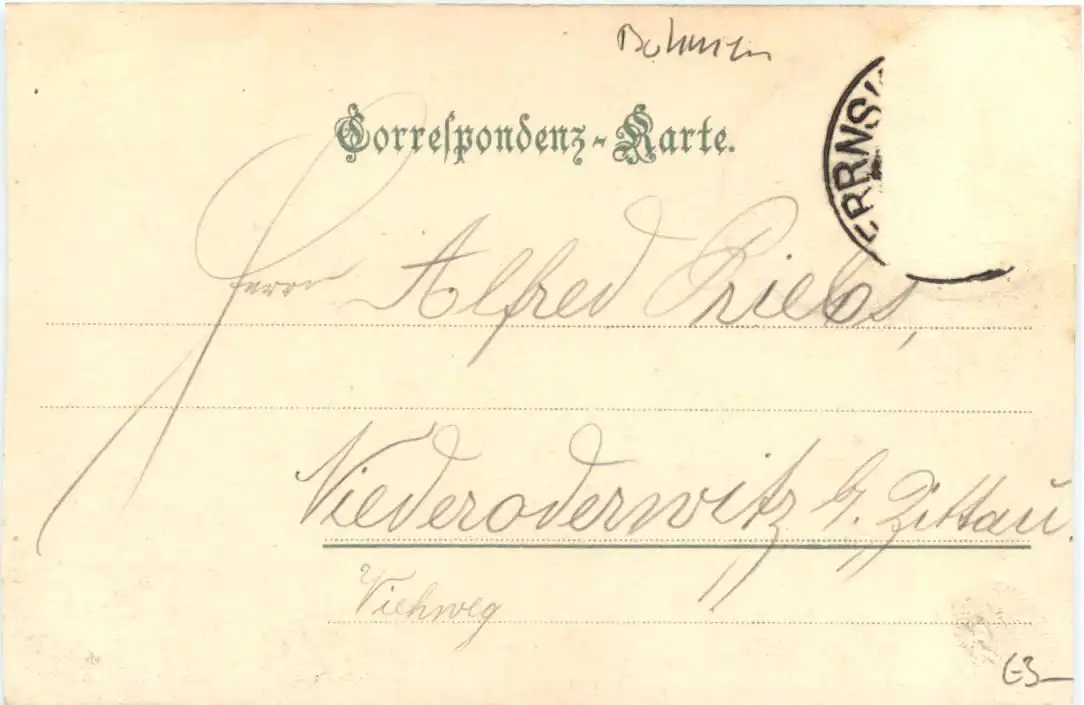 Böhmen
Correspondenz-Karte.
ERRNS
Herrn Alfred Priebs,
Niederoderwitz b. Zittau.
Viehweg